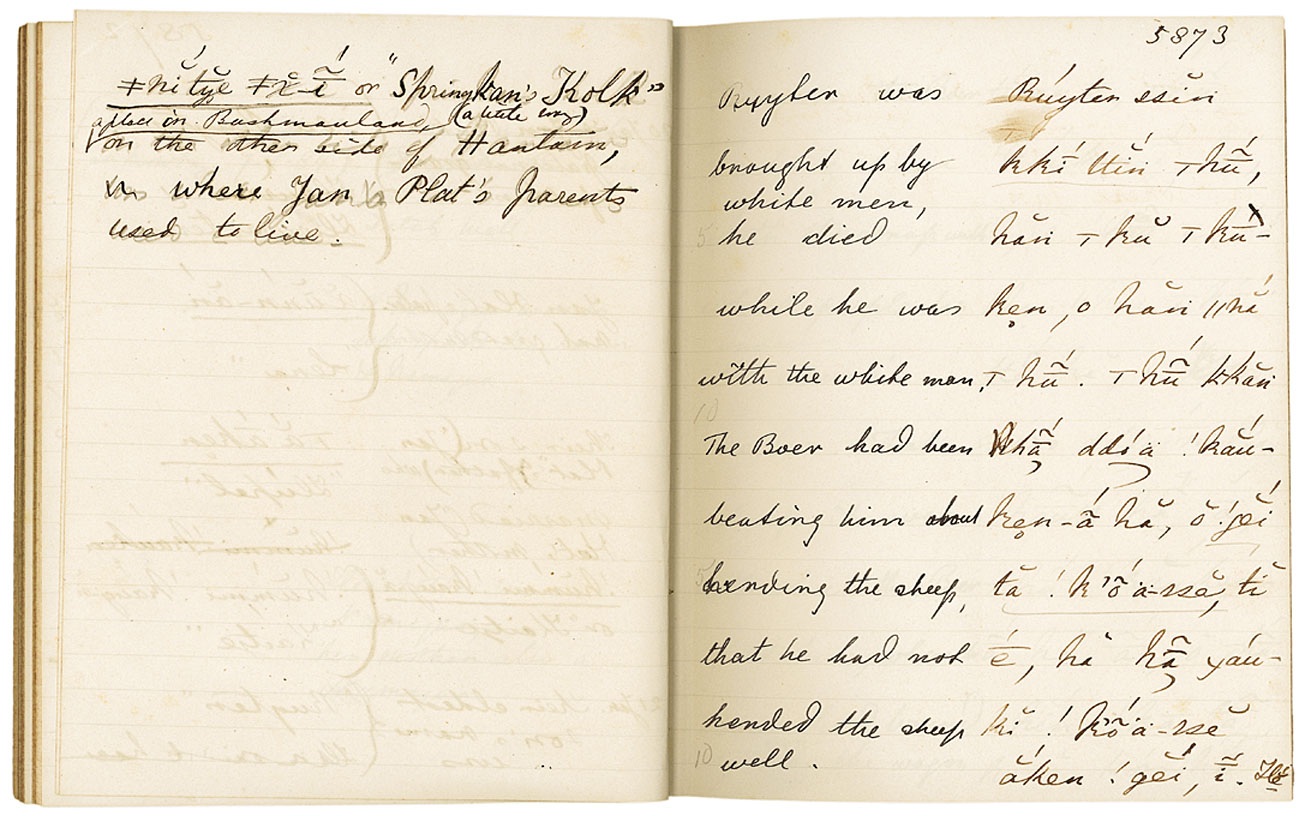 ǂnĭtyĕ ǂx̆-ĩ́ or "Springkan's Kolk"
a place in Bushmanland, (a little way)
on the other side of Hantam,
where Jan Plat's parents
used to live.
5873
Ruyter was Rúyter ssĭn
brought up by
white men,
he died hăn ꟷ kŭ ꟷ kū-
while he was ken, o hăn ǁnắ
with the white men, ꟷ hũ̄́. ꟷ hũ̄́ kkăn
The Boer had been ddóä !kắu-
beating him about ken-ā́ hă, ŏ !gĕ́i
herding the sheep, tă !k'õ̆ä-ssĕ, tĭ
that he had not é, hă hã̄ yáu-
herded the sheep kĭ !kõ̆ä-ssĕ
well. ắken !gĕ́i, ĩ̄.